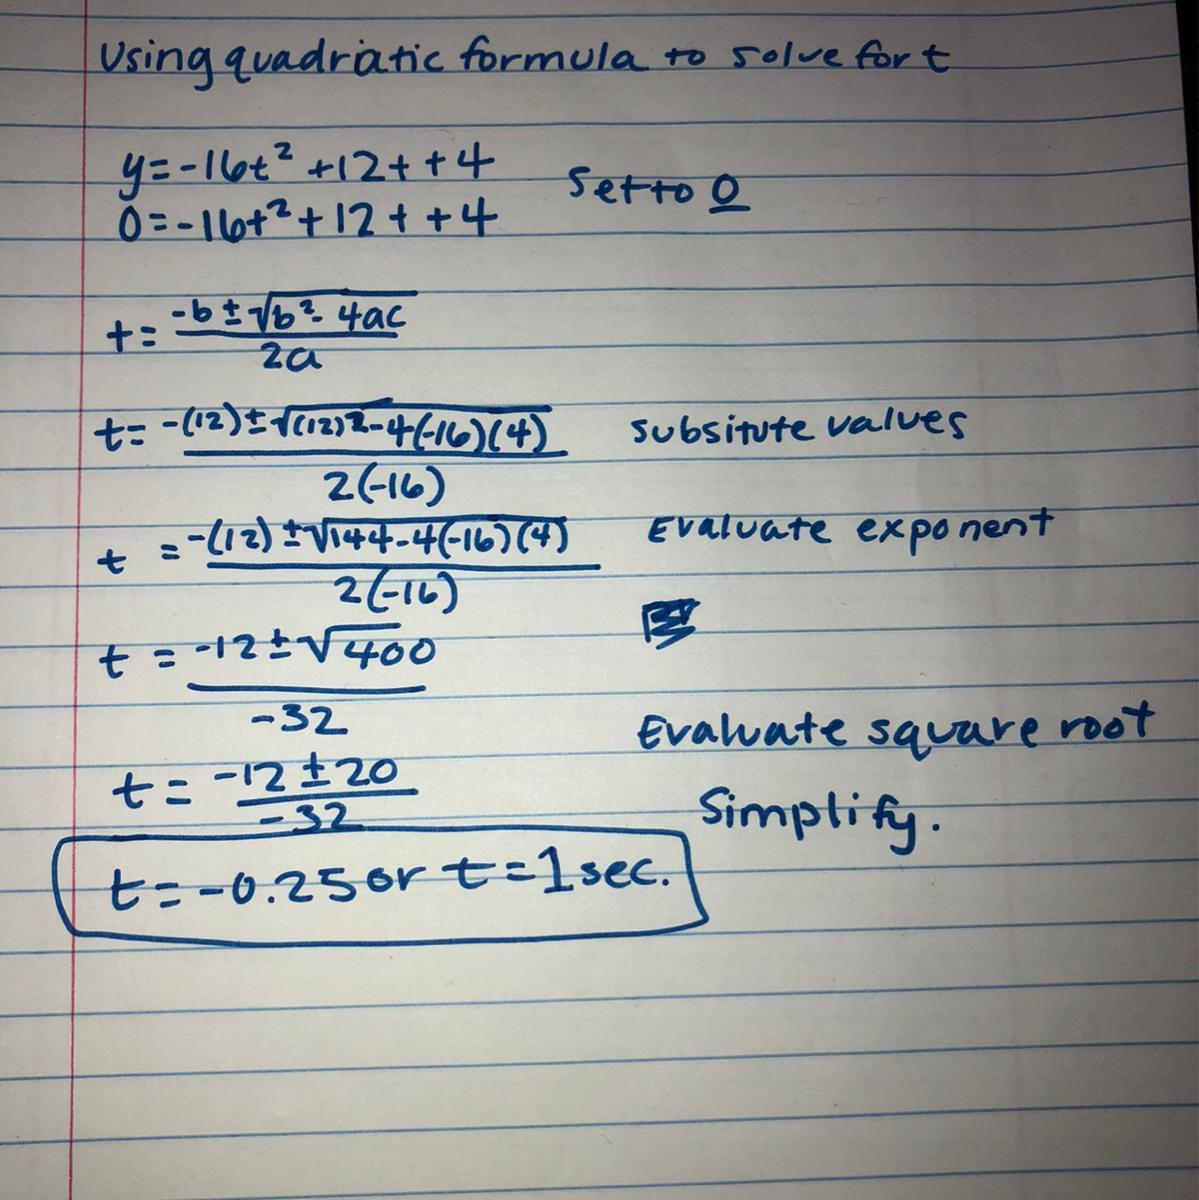 Using quadriatic formula to solve for t
y=-16t² +12t +4
Set to 0
0=-16t²+12t +4
t= -b±√b²-4ac / 2a
t= -(12)±√(12)²-4(-16)(4) / 2(-16)
subsitute values
t = -(12)±√144-4(-16)(4) / 2(-16)
Evaluate exponent
t = -12±√400 / -32
Evaluate square root
t = -12±20 / -32
Simplify.
t=-0.25 or t=1sec.